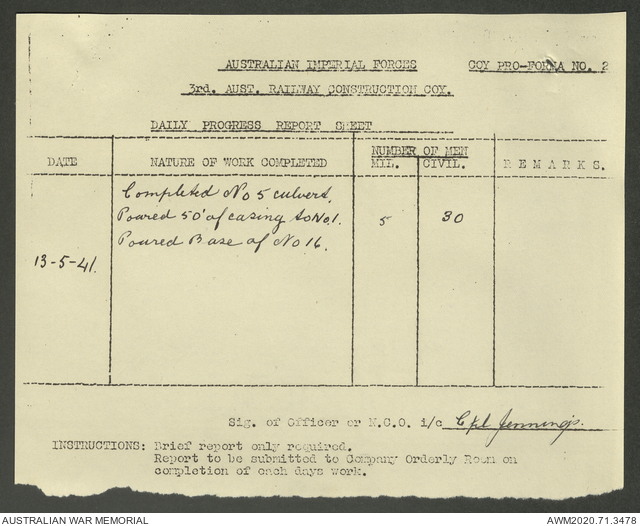 AUSTRALIAN IMPERIAL FORCES COY PRO-FORMA NO. 2
3rd. AUST. RAILWAY CONSTRUCTION COY.
DAILY PROGRESS REPORT SHEET
NUMBER OF MEN
DATE NATURE OF WORK COMPLETED MIL. CIVIL. REMARKS.
Completed No 5 culvert.
Poured 50' of casing to No1. 5 30
Poured Base of No 16.
13-5-41.
Sig. of Officer or N.C.O. i/c Cpl Jennings.
INSTRUCTIONS: Brief report only required.
Report to be submitted to Company Orderly Room on
completion of each days work.
AUSTRALIAN WAR MEMORIAL AWM2020.71.3478